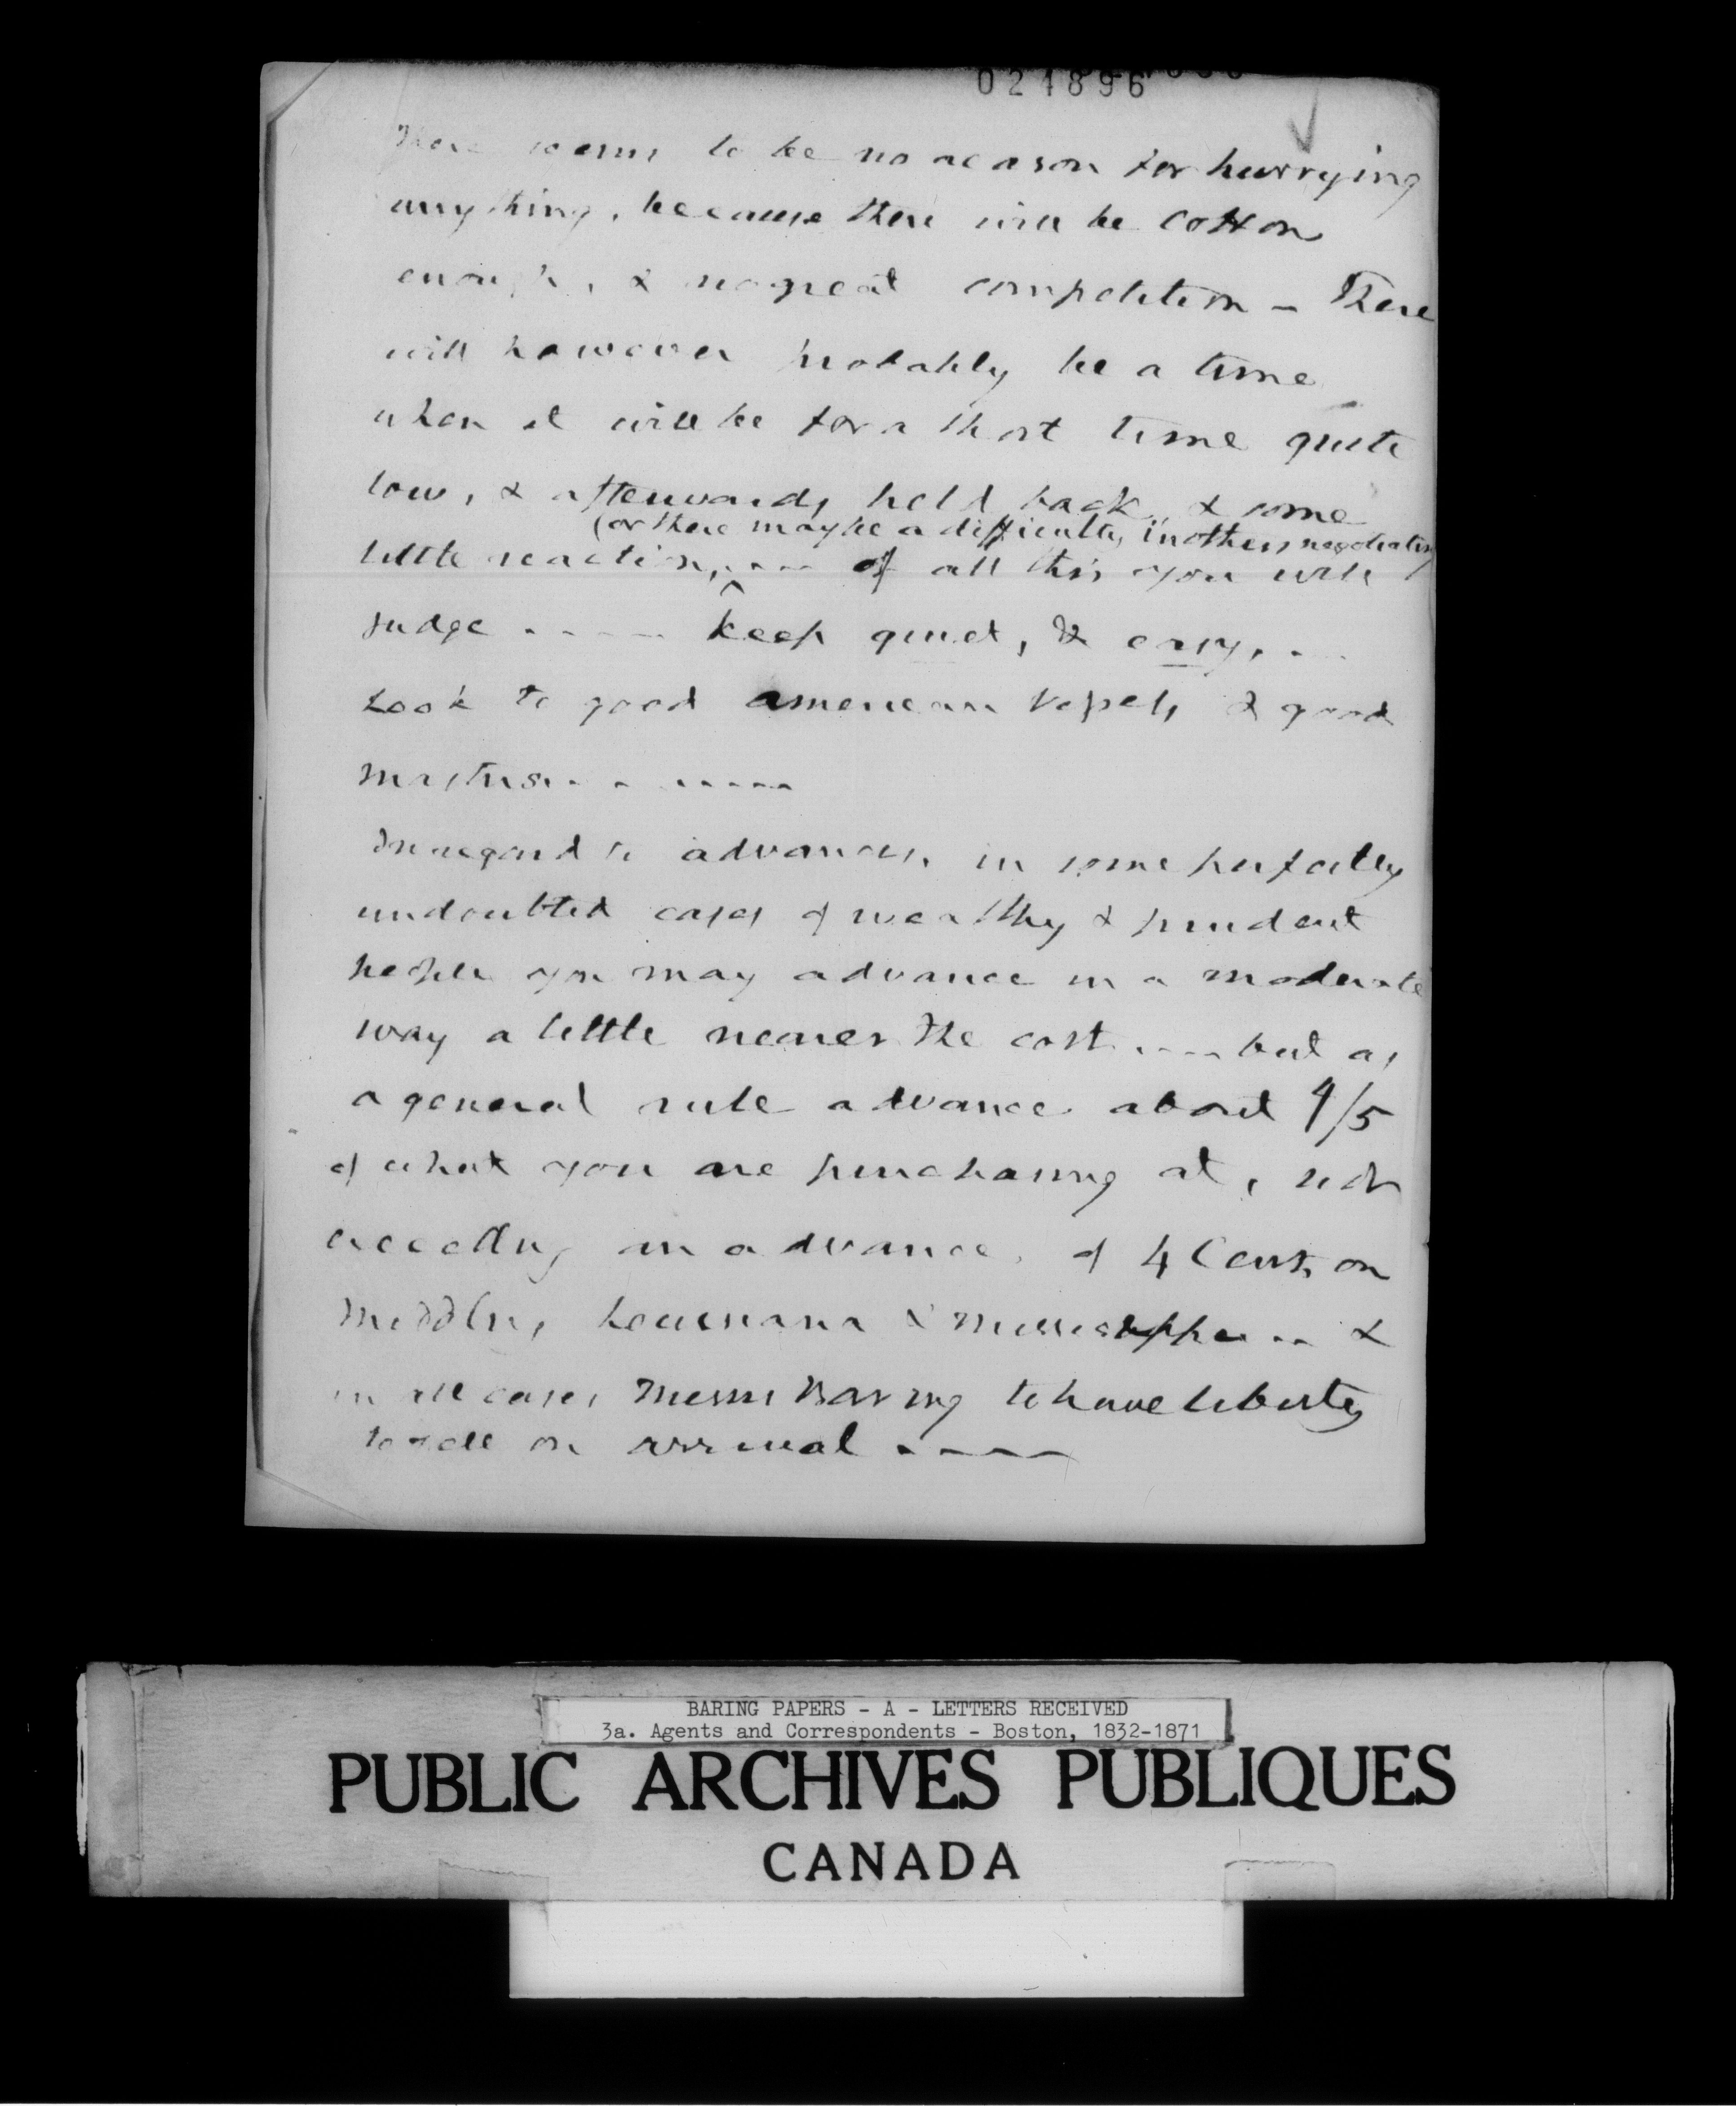 024896
There seems to be no reason for hurrying
anything, because there will be cotton
enough, & no great competition – There
will however probably be a time
when it will be for a short time quite
low, & afterwards held back, & some
(or there may be a difficulty in others negotiating
little reaction, ---- of all this you will
judge ----- keep quiet, & easy, ---
Look to good american vessels & good
masters. - - -----
In regard to advances, in some perfectly
undoubted cases of wealthy & prudent
people you may advance in a moderate
way a little nearer the cost ---- but as
a general rule advance about 4/5
of what you are purchasing at, not
exceeding an advance, of 4 Cents on
Middling Louisiana & Mississippi -- &
in all cases Messrs Baring to have liberty
to sell on arrival ----
BARING PAPERS - A - LETTERS RECEIVED
3a. Agents and Correspondents - Boston, 1832-1871
PUBLIC ARCHIVES PUBLIQUES
CANADA